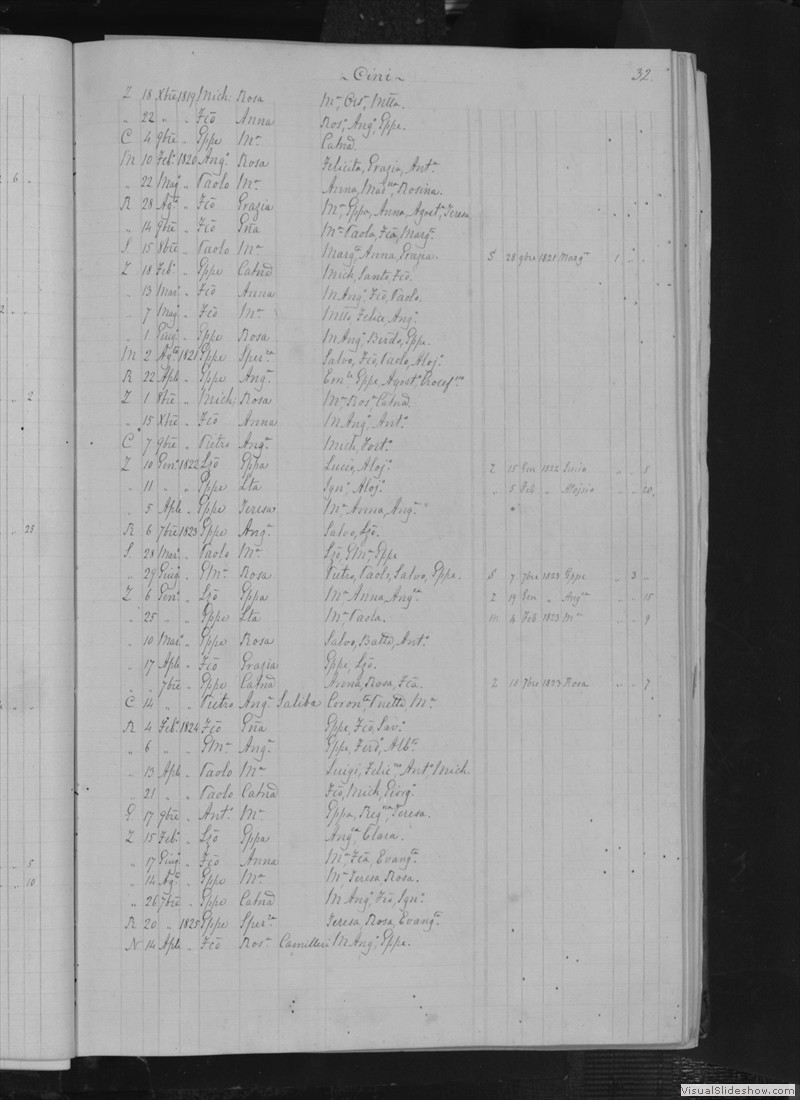 ~ Cini ~ 32.
Z 18 Xbre 1819 Mich: Rosa Ma, Ors, Mtta.
„ 22 „ „ Fco Anna Rosa, Anga, Eppe.
C 4 9bre „ Eppe Ma Catnd.
M 10 Feb. 1820 Anga Rosa Felicita, Grazia, Anta
„ 22 Mag. „ Paolo Ma Anna, Marna, Rosina.
R 28 Agto „ Fco Grazia Ma, Eppa, Anna, Agost, Teresa
„ 14 9bre „ Fco Gña Ma Paola, Fca, Marga
S. 15 8bre „ Paolo Ma Marga, Anna, Grazia. S 28 9bre 1821 Marga 1 „ „
Z 18 Feb. „ Eppe Catnd Mich, Santo, Fco.
„ 13 Mar. „ Fco Anna M Anga, Fco, Paolo.
„ 7 Mag. „ Fco Ma Mtta, Felice, Anga
„ 1 Giug. „ Eppe Rosa M Anga, Eppe.
M 2 Agto 1821 Eppe Sperza Salvo, Fco, Paolo, Alojo
R 22 Aple „ Eppe Anga Eppe, Agosta
Z 1 8bre „ Mich: Rosa Ma Rosa, Catnd.
„ 15 Xbre „ Fco Anna M Anga, Anta
C 7 9bre „ Pietro Anga Mich, Forta
Z 10 Gen. 1822 Lzo Eppa Lucio, Alojo Z 15 Gen 1822 Lucio „ „ 5
„ 11 „ „ Eppe Lta Igno, Alojo „ 5 Feb „ Alojsio „ „ 20
„ 5 Aple „ Eppe Teresa Ma Anna, Anga
R 6 7bre 1823 Eppe Anga Salvo, Lzo.
S. 28 Mar. „ Paolo Ma Lzo, GMa Eppe
„ 29 Giug. „ GMa Rosa Pietro, Paolo, Salvo, Eppa. S 7 7bre 1823 Eppe „ 3 „
Z 6 Gen. „ Lzo Eppa Ma Anna, Anga Z 19 Gen „ Anga „ „ 15
„ 25 „ „ Eppe Lta Ma, Paola. M 4 Feb 1823 Ma „ „ 9
„ 10 Mar. „ Eppe Rosa Salvo, Batta, Anta
„ 17 Aple „ Fco Grazia Eppe, Lzo.
„ „ 7bre „ Eppe Catnd Arena, Rosa, Fca. Z 10 7bre 1823 Rosa „ „ 7
C 14 „ „ Pietro Anga Saliba Coronta, Ma
R 4 Feb. 1824 Fco Gña Eppe, Fco, Savo
„ 6 „ „ GMa Anga Eppe, Ferdo, Albta
„ 13 Aple „ Paolo Ma Luigi, Felicna, Anta Mich.
„ 21 „ „ Paolo Catnd Fco, Mich, Giorg.
G. 17 9bre „ Anto Ma Eppa, Regna, Teresa.
Z 15 Feb. „ Lzo Eppa Anga, Clara.
„ 17 Giug. „ Fco Anna Ma, Fca, Evanga.
„ 14 Ago. „ Eppe Ma Ma, Teresa, Rosa.
„ 26 7bre „ Eppe Catnd M Anga, Fco, Igno.
R 20 „ 1825 Eppe Sperza Teresa, Rosa, Evanga.
N 14 Aple „ Fco Rosa Camilleri M Anga, Eppa.
2
6
2
25
5
10
VisualSlideshow.com